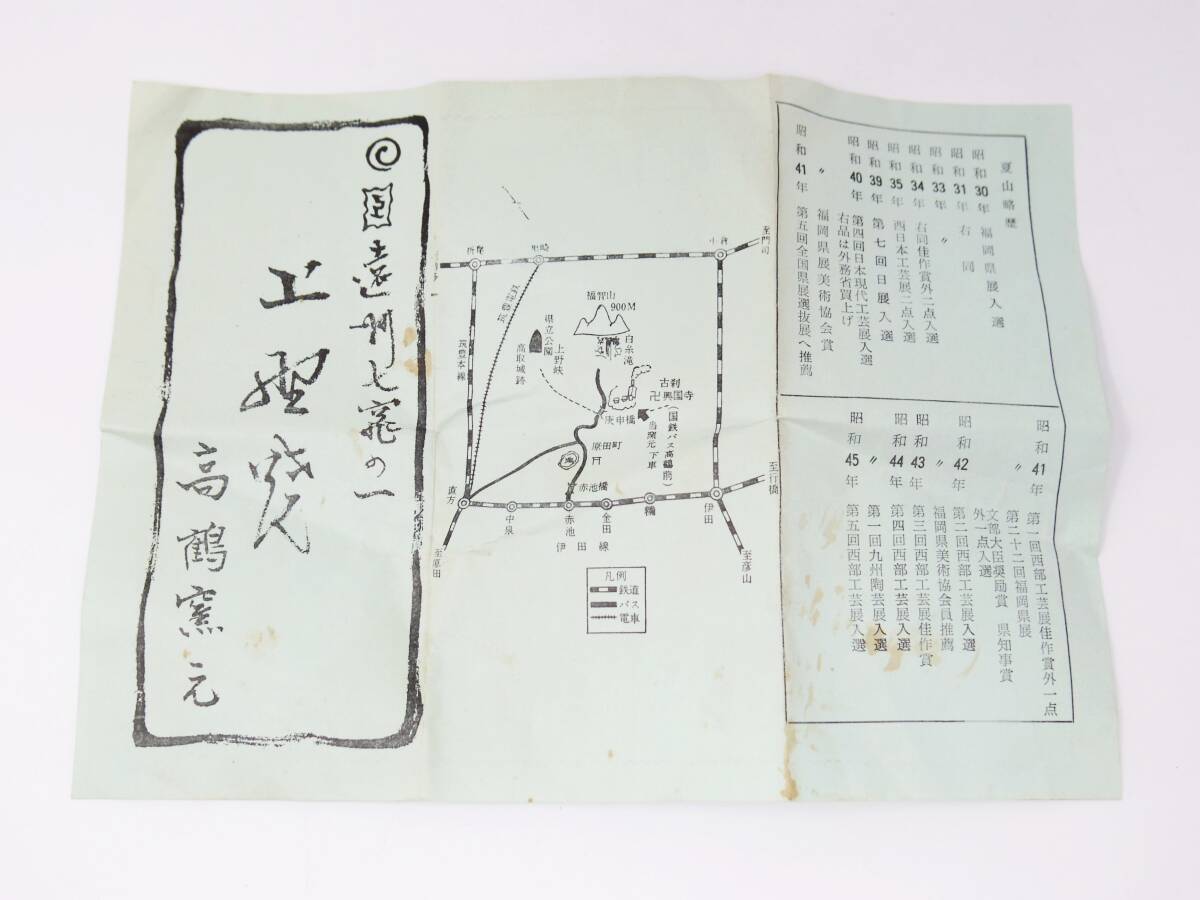 夏山略歴
昭和30年 福岡県展入選
昭和31年 右同
昭和33年 〃
昭和34年 右同佳作賞外二点入選
昭和35年 西日本工芸展二点入選
昭和39年 第七回日展入選
昭和40年 第四回日本現代工芸展入選
右品は外務省買上げ
〃 福岡県展美術協会賞
昭和41年 第五回全国県展選抜展へ推薦
昭和41年 第一回西部工芸展佳作賞外一点
〃 第二十二回福岡県展
文部大臣奨励賞 県知事賞
外一点入選
昭和42年 第二回西部工芸展入選
〃 福岡県美術協会会員推薦
昭和43年 第三回西部工芸展佳作賞
昭和44年 第四回西部工芸展入選
〃 第一回九州陶芸展入選
昭和45年 第五回西部工芸展入選
至門司
折尾
黒崎
小倉
筑豊電鉄
筑豊本線
福智山
900M
白糸滝
県立公園
上野峡
高取城跡
古刹
卍興国寺
庚申橋
(国鉄バス高鶴前)
当窯元下車
原田町
赤池橋
至行橋
直方
中泉
赤池
金田
糒
伊田
伊田線
至彦山
凡例
鉄道
バス
電車
遠州七窯の一
上野焼
高鶴窯元